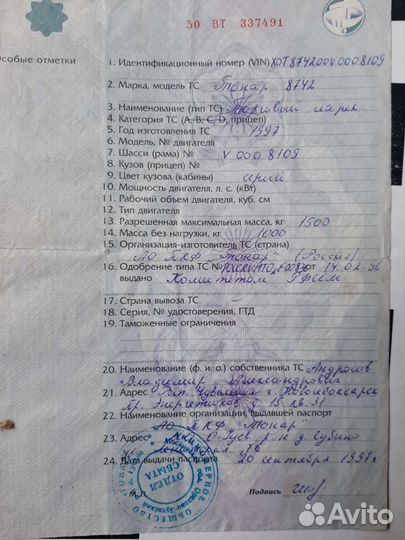 50 ВТ 337491
Особые отметки
1. Идентификационный номер (VIN) X0T874200V0008109
2. Марка, модель ТС Тонар 8742
3. Наименование (тип ТС) Торговый ларек
4. Категория ТС (A, B, C, D, прицеп)
5. Год изготовления ТС 1997
6. Модель, № двигателя
7. Шасси (рама) № V 0008109
8. Кузов (прицеп) №
9. Цвет кузова (кабины) серый
10. Мощность двигателя, л. с. (кВт)
11. Рабочий объем двигателя, куб. см
12. Тип двигателя
13. Разрешенная максимальная масса, кг 1500
14. Масса без нагрузки, кг 1000
15. Организация-изготовитель ТС (страна)
АО ПКФ "Тонар" (Россия)
16. Одобрение типа ТС № от 14.02.96
выдано Комитетом РФ
17. Страна вывоза ТС —
18. Серия, № удостоверения, ГТД
19. Таможенные ограничения
20. Наименование (ф. и. о.) собственника ТС Андросов
Владимир Александрович
21. Адрес Чувашия г. Новочебоксарск
Энергетиков д. 15 кв. 31
22. Наименование организации, выдавшей паспорт
АО ПКФ "Тонар"
23. Адрес О-Зуев. р-н д. Губино
ул. Ленинская 76
24. Дата выдачи паспорта 20 сентября 1997г.
Подпись
ОТДЕЛ
СБЫТА
Avito